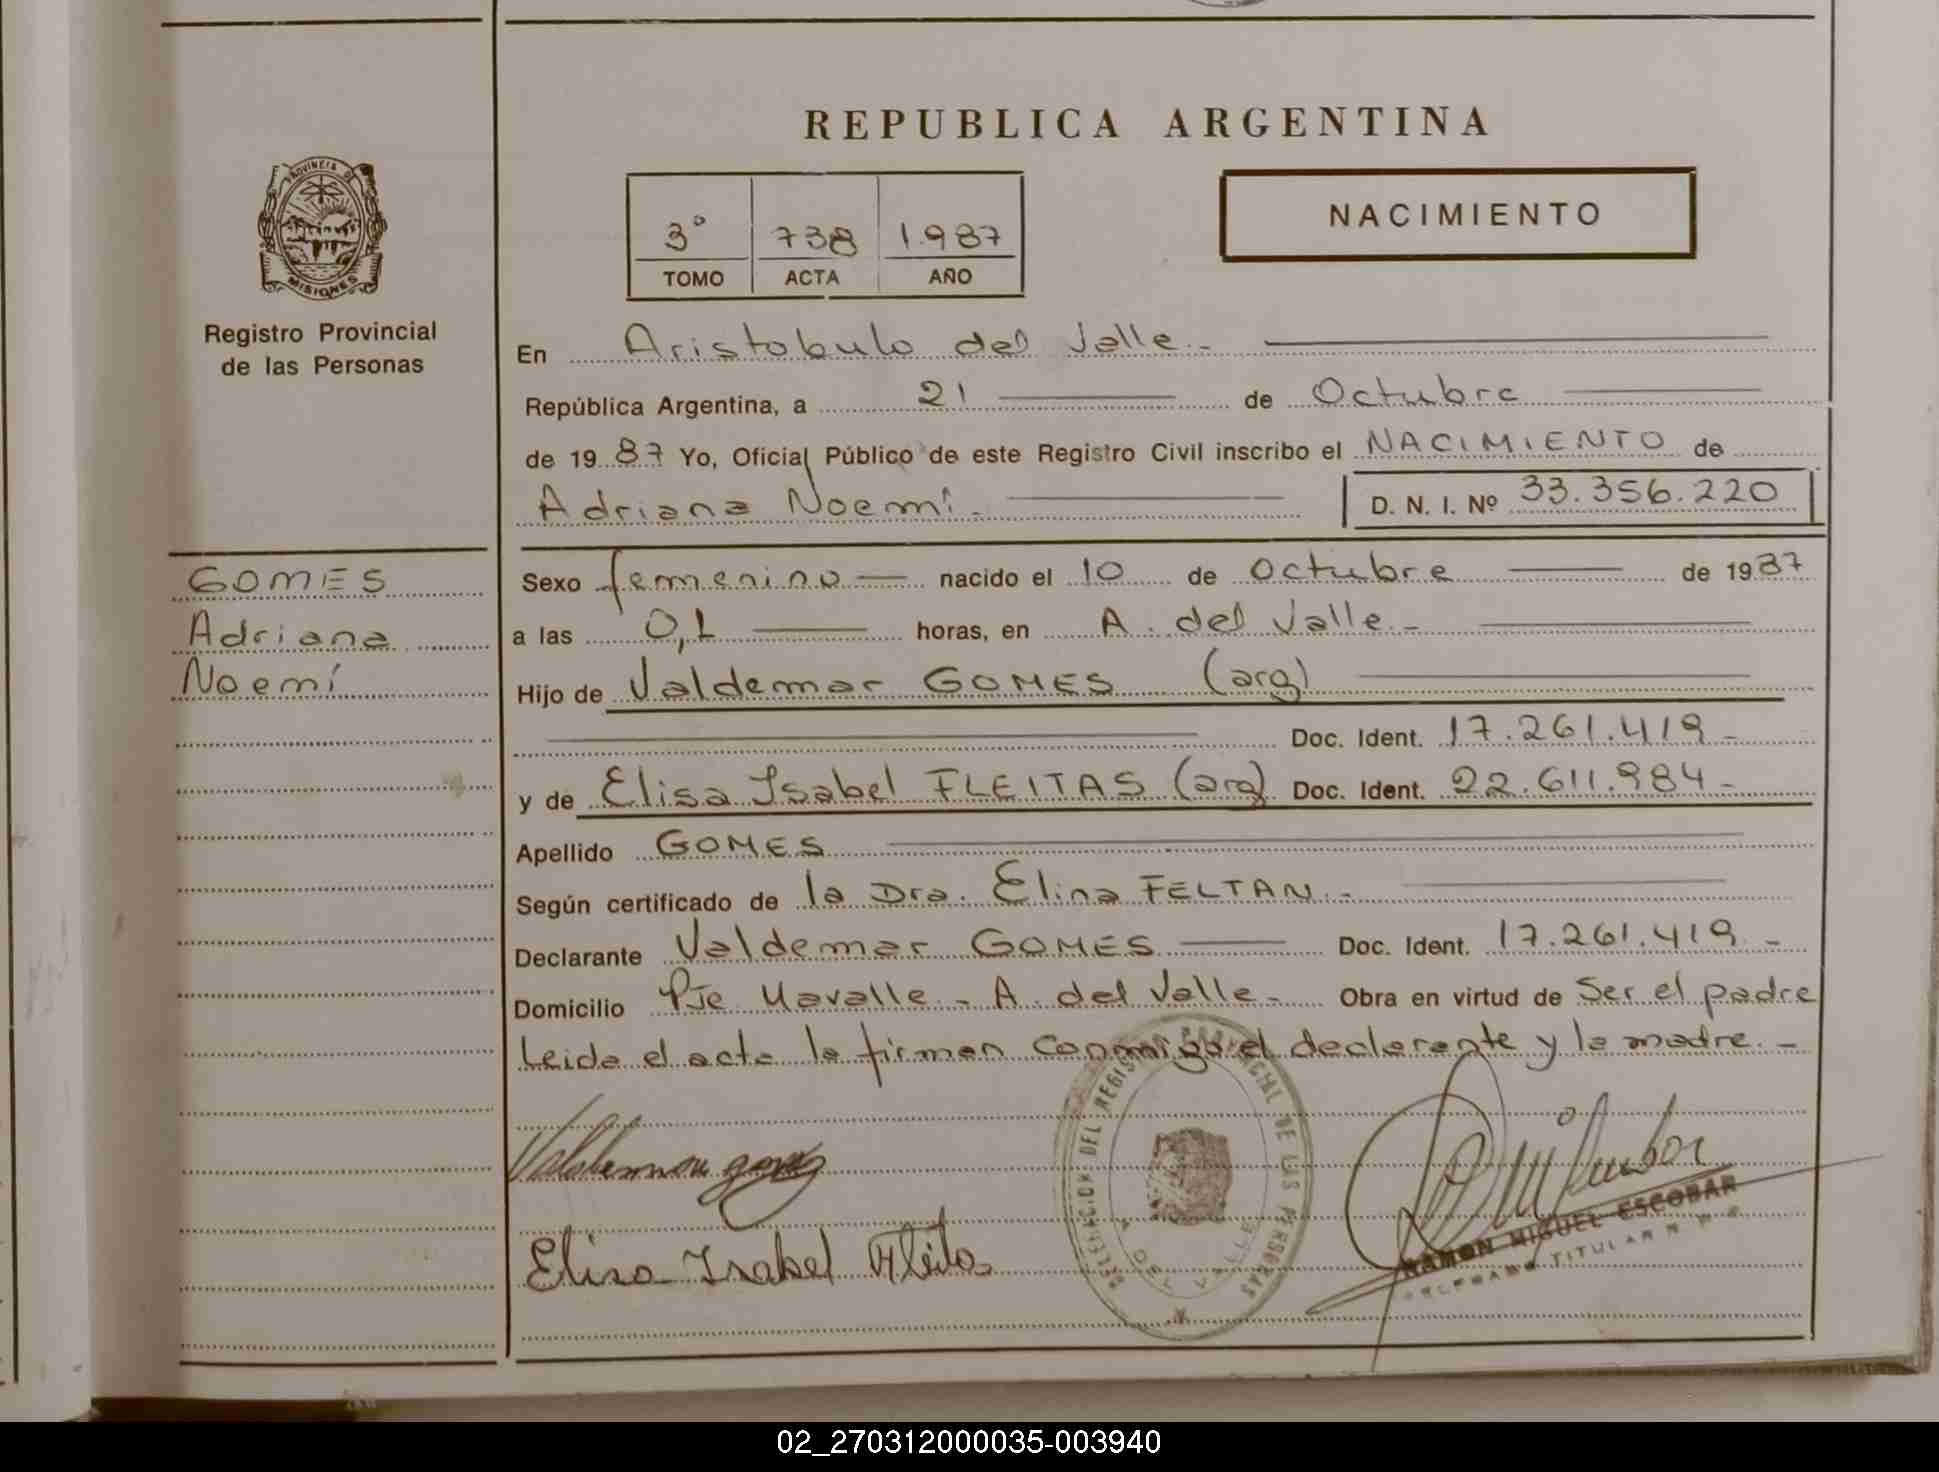 REPUBLICA ARGENTINA
PROVINCIA DE
MISIONES
Registro Provincial
de las Personas
3° 738 1.987
TOMO ACTA AÑO
NACIMIENTO
En Aristobulo del Valle.-
República Argentina, a 21 de Octubre
de 1987 Yo, Oficial Público de este Registro Civil inscribo el NACIMIENTO de
Adriana Noemí.- D. N. I. Nº 33.356.220
GOMES
Adriana
Noemí
Sexo femenino nacido el 10 de Octubre de 1987
a las 0,1 horas, en A. del Valle.-
Hijo de Valdemar GOMES (arg)
Doc. Ident. 17.261.419-
y de Elisa Isabel FLEITAS (arg) Doc. Ident. 22.611.984-
Apellido GOMES
Según certificado de la Dra. Elina FELTAN.-
Declarante Valdemar GOMES Doc. Ident. 17.261.419-
Domicilio Pje A. del Valle- Obra en virtud de Ser el padre
Leida el acta la firman conmigo el declarante y la madre.-
DELEGACION DEL REGISTRO PROVINCIAL DE LAS PERSONAS
A. DEL VALLE
Valdemar gomes
Elisa Isabel Fleitas
RAMON MIGUEL ESCOBAR
TITULAR
02_270312000035-003940